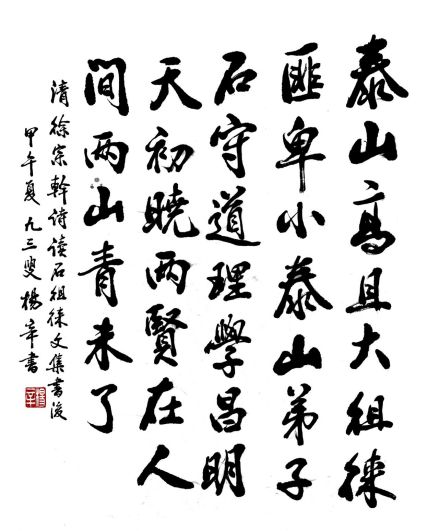 泰山高且大徂徕
匪卑小泰山弟子
石守道理學昌明
天初曉两賢在人
間两山青未了
清徐宗幹诗读石徂徕文集書後
甲午夏九三叟楊辛書
楊辛